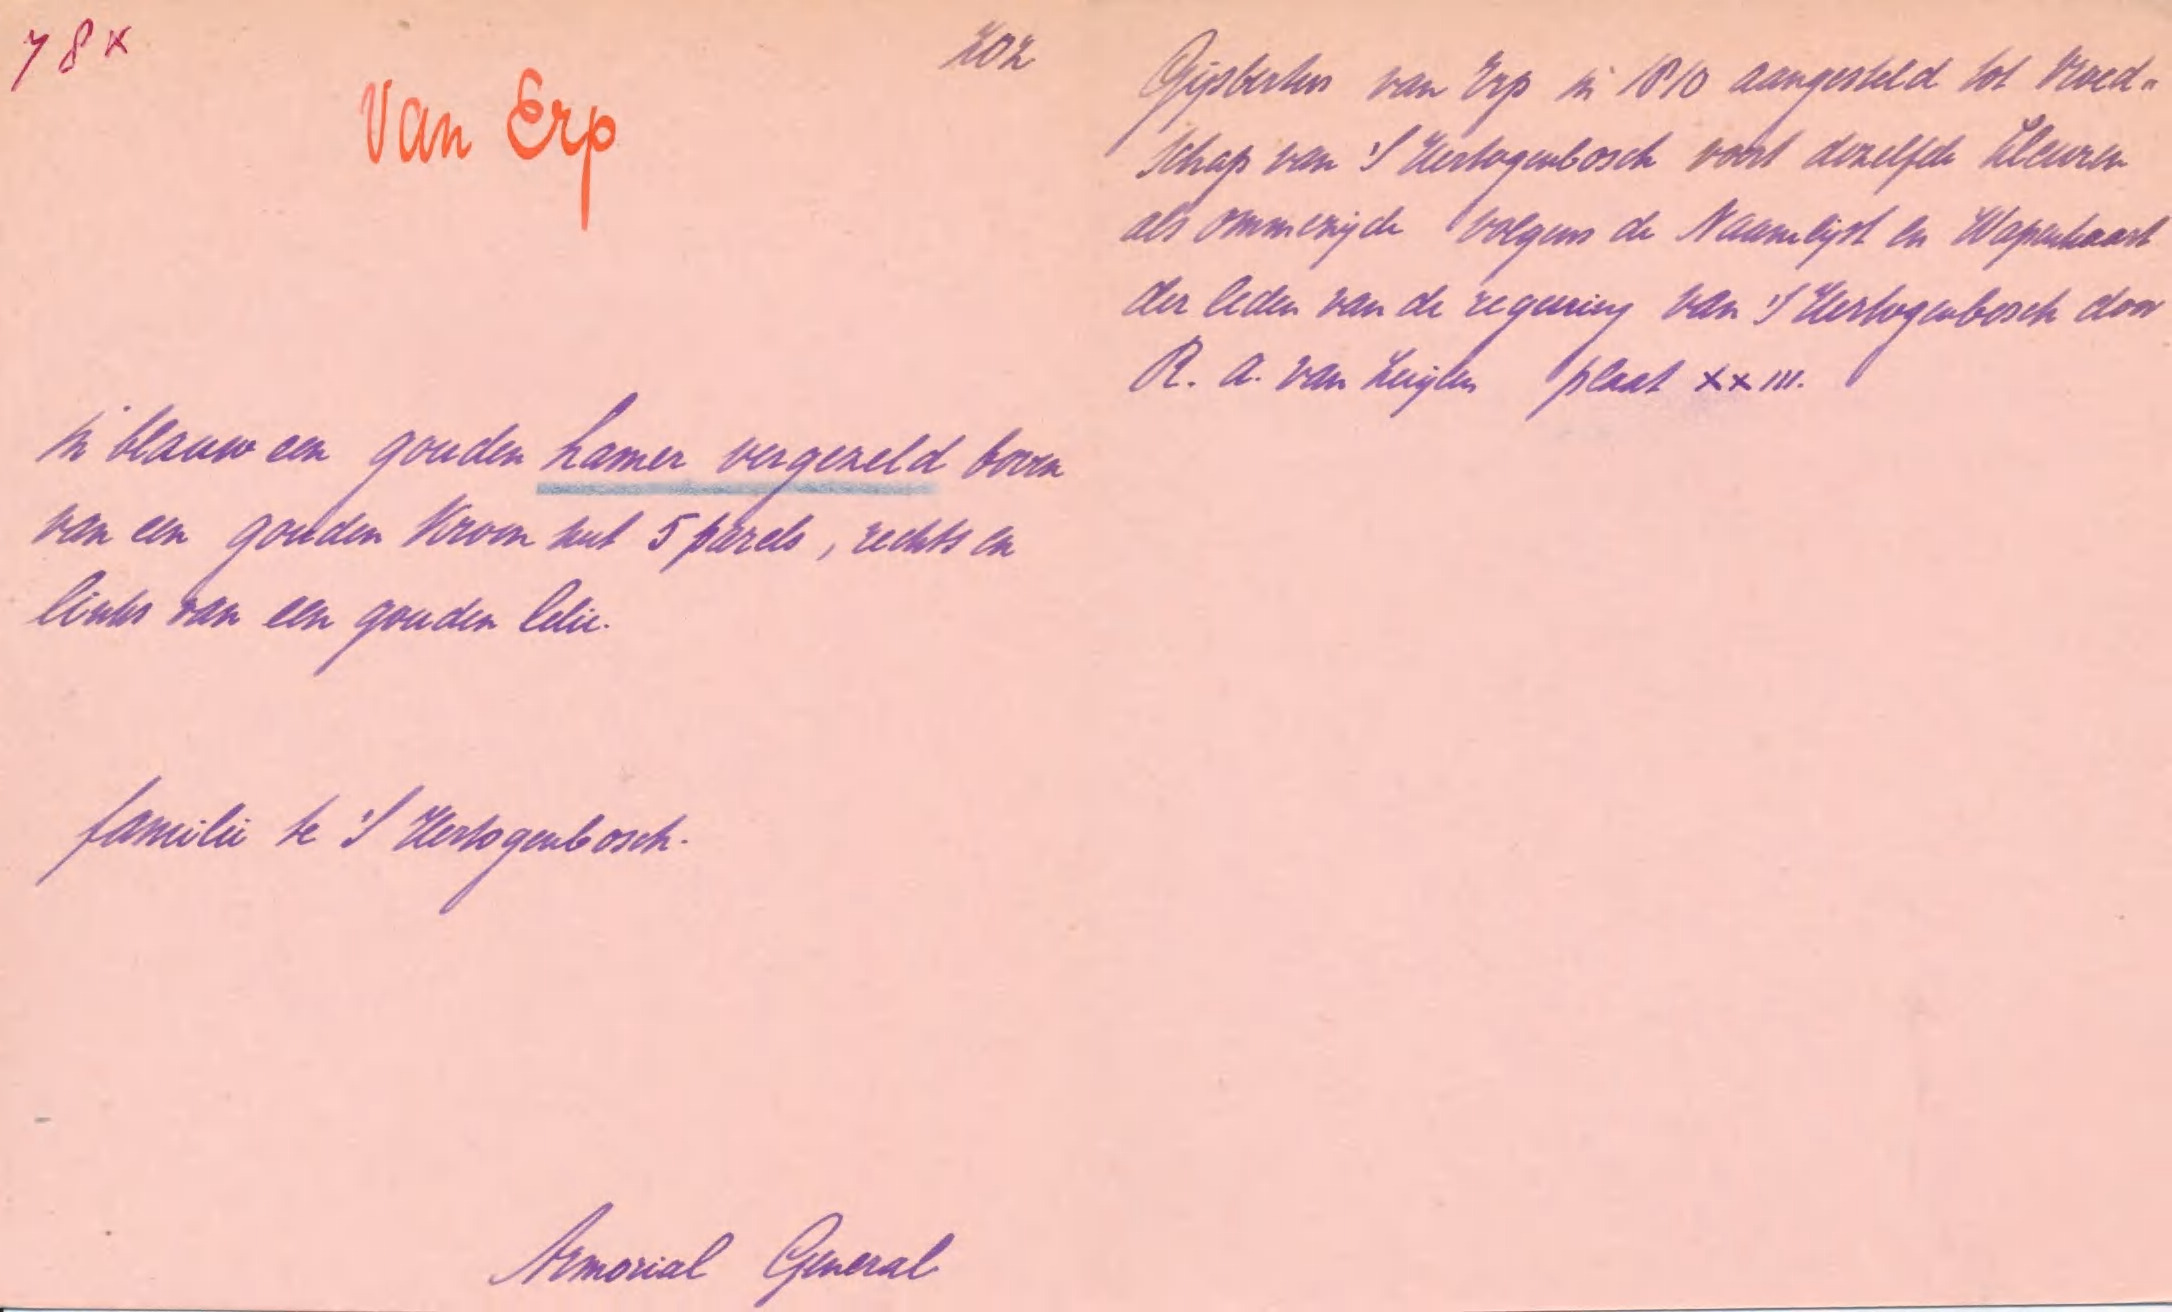 78x
Van Erp
in blauw een gouden hamer vergezeld boven
van een gouden kroon met 5 parels, rechts en
links van een gouden lelie.
familie te 's Hertogenbosch.
Armorial General
Gijsbertus van Erp in 1810 aangesteld tot vroed-
schap van 's Hertogenbosch voert dezelfde kleuren
als ommezijde volgens de Naamlijst en Wapenkaart
der leden van de regeering van 's Hertogenbosch door
R. A. van Zuijlen plaat XXIII.